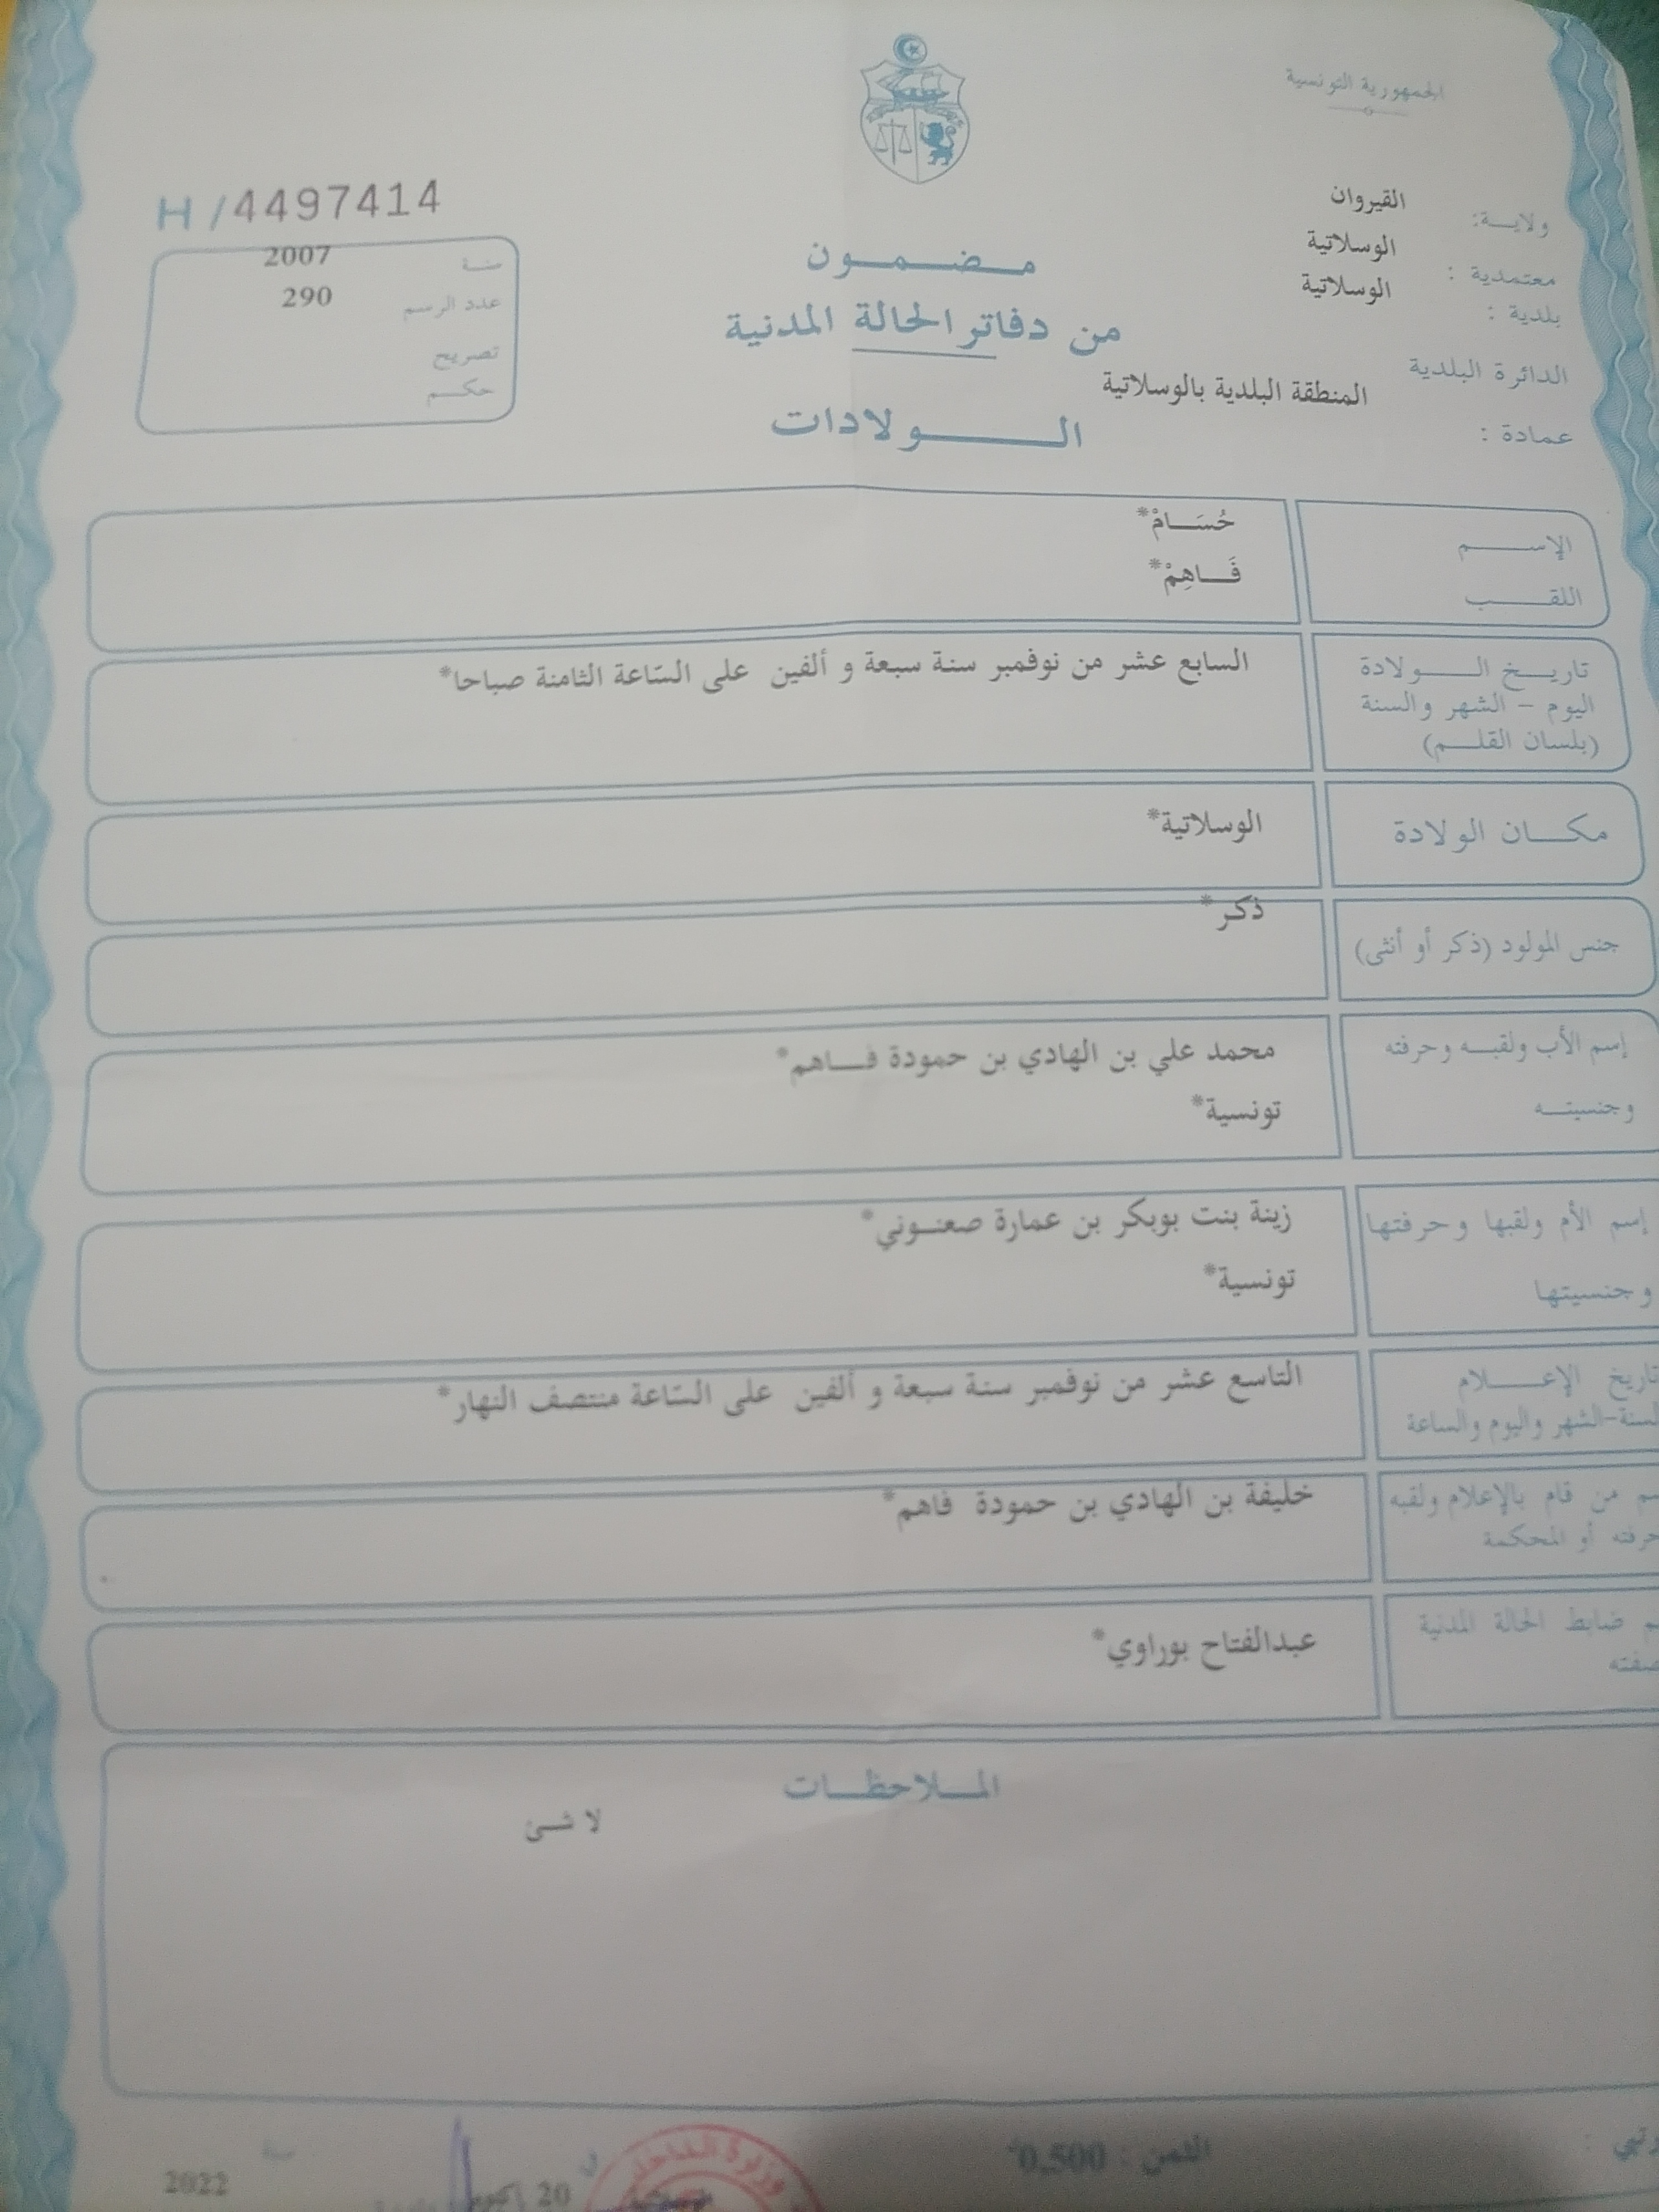 الجمهورية التونسية
ولايـــة: القيروان
معتمدية : الوسلاتية
بلدية : الوسلاتية
الدائرة البلدية المنطقة البلدية بالوسلاتية
عمادة :
مـــضـــمـــون
من دفاتر الحالة المدنية
الـــــولادات
H /4497414
سنـة 2007
عدد الرسم 290
تصريح
حكـــم
الإســـــم حُسَـــامْ*
اللقـــــب فَـــاهِمْ*
تاريـــخ الـــــولادة السابع عشر من نوفمبر سنة سبعة و ألفين على السّاعة الثامنة صباحا*
اليوم - الشهر والسنة
(بلسان القلـــم)
مكـــان الولادة الوسلاتية*
جنس المولود (ذكر أو أنثى) ذكر*
إسم الأب ولقبـــه وحرفته محمد علي بن الهادي بن حمودة فـــاهم*
وجنسيتـــه تونسية*
إسم الأم ولقبها وحرفتها زينة بنت بوبكر بن عمارة صعنـــوني*
وجنسيتها تونسية*
تاريخ الإعـــــلام التاسع عشر من نوفمبر سنة سبعة و ألفين على السّاعة منتصف النهار*
لسنة-الشهر واليوم والساعة
سم من قام بالإعلام ولقبه خليفة بن الهادي بن حمودة فاهم*
حرفته أو المحكمة
م ضابط الحالة المدنية عبدالفتاح بوراوي*
صفته
الملـــاحظـــات
لا شـــئ
الثمن : 0,500
في 20 أكتوبر
سنة 2022
وزارة الداخلية